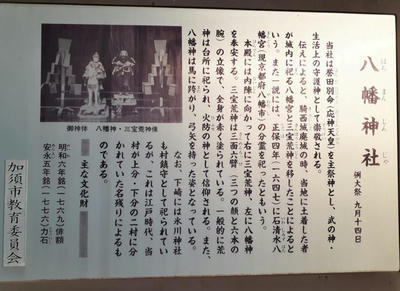 八幡神社
はちまんじんじゃ
例大祭 九月十四日
当社は誉田別命（応神天皇）を主祭神とし、武の神・
生活上の守護神として崇敬される。
伝えによると、騎西城廃城の時、当地に土着した者
が城内に祀る八幡宮と三宝荒神を移したことによると
いう。また一説には、正保四年（一六四七）に石清水八
幡宮（現京都府八幡市）の分霊を祀ったともいう。
本殿には内陣に向かって右に三宝荒神、左に八幡神
を奉安する。三宝荒神は三面六臂（三つの顔と六本の
腕）の立像で、全身が赤く塗られている。一般的に荒
神は台所に祀られ、火防の神として信仰される。また、
八幡神は馬に跨がり、弓矢を持った姿となっている。
なお、戸崎には氷川神社
も村鎮守として祀られてい
るが、これは江戸時代、当
村が上分・下分の二村に分
かれていた名残りによるも
のである。
御神体 八幡神・三宝荒神像
主な文化財
明和六年銘（一七六九）俳額
安永五年銘（一七七六）力石
加須市教育委員会